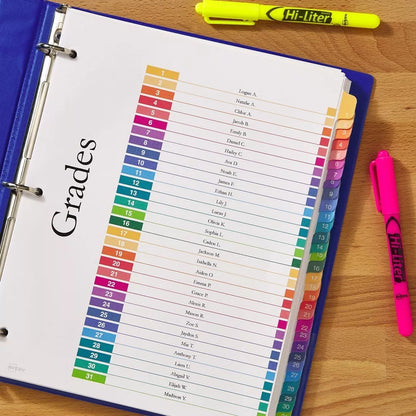 Hi-Liter
Hi-Liter
Hi-Liter
Grades
1 Logan A.
2 Natalie A.
3 Chloe A.
4 Jacob B.
5 Emily B.
6 Daniel C.
7 Hailey C.
8 Ava D.
9 Noah E.
10 James F.
11 Ethan H.
12 Lily J.
13 Lucas J.
14 Olivia K.
15 Sophia L.
16 Caden L.
17 Jackson M.
18 Isabella N.
19 Aiden O.
20 Emma P.
21 Grace P.
22 Alexis R.
23 Mason R.
24 Zoe S.
25 Jayden S.
26 Mia T.
27 Anthony T.
28 Laura U.
29 Abigail V.
30 Elijah W.
31 Madison Y.